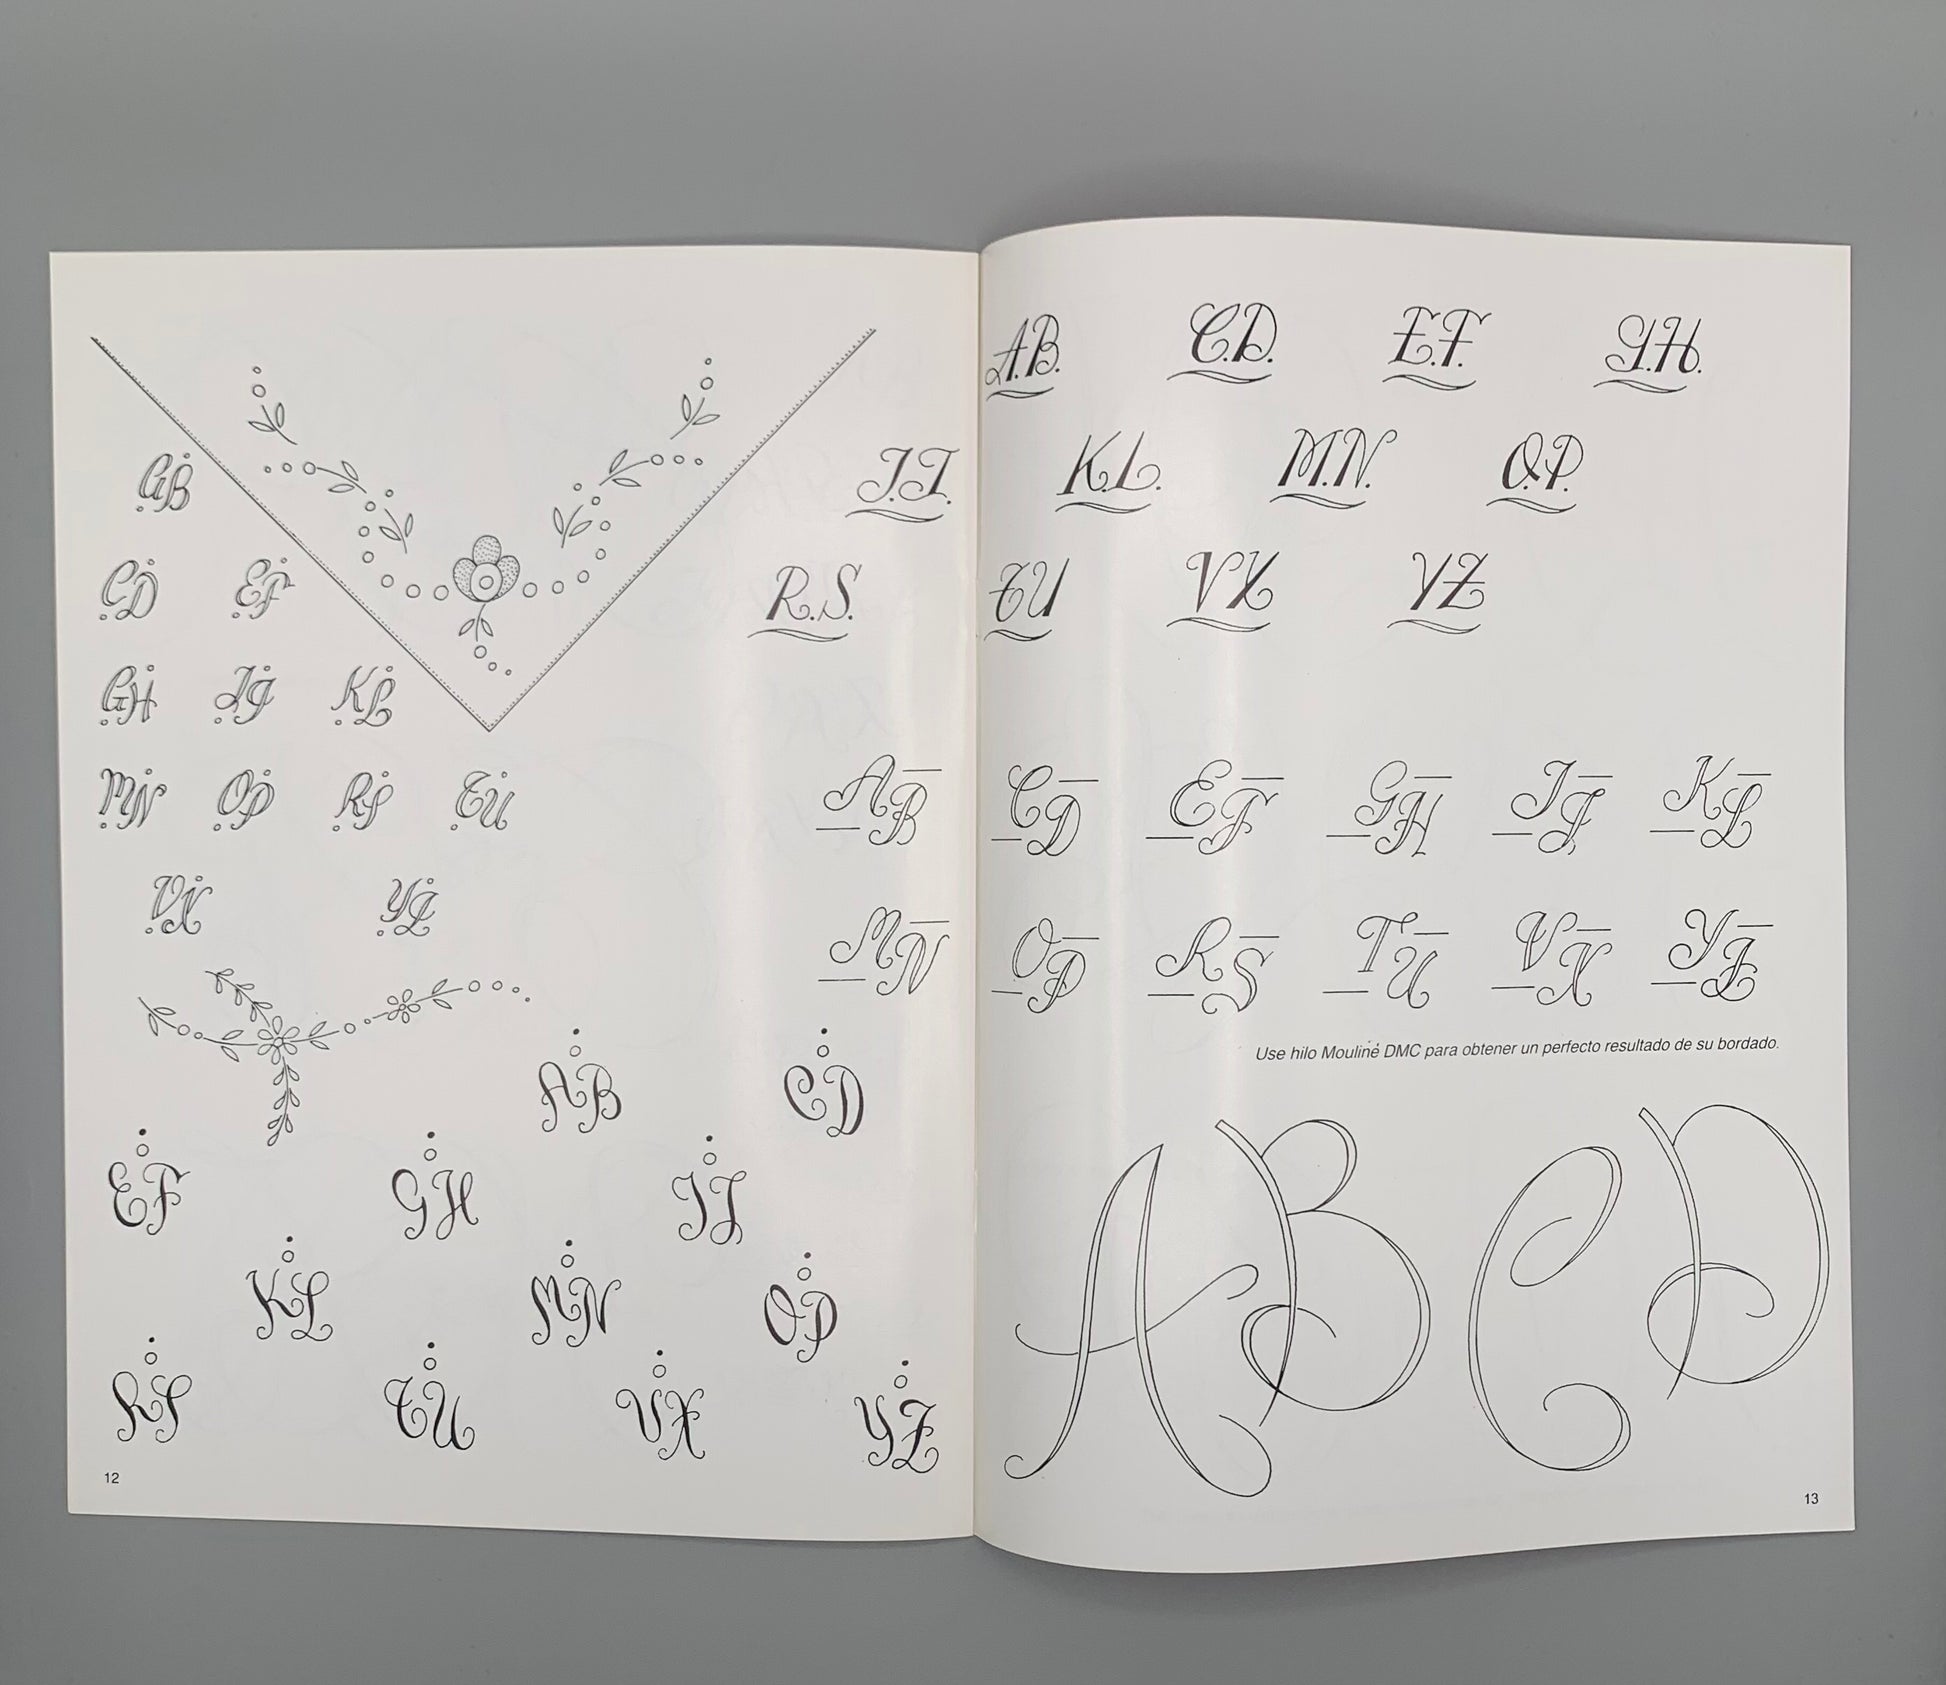 AB
CD EF
GH IJ KL
MN OP RS TU
VX YZ
AB CD
EF GH IJ
KL MN OP
RS TU VX YZ
12
A.B. C.D. E.F. G.H.
I.J. K.L. M.N. O.P.
R.S. TU VX YZ
AB CD EF GH IJ KL
MN OP RS TU VX YZ
Use hilo Mouliné DMC para obtener un perfecto resultado de su bordado.
A B C D
13